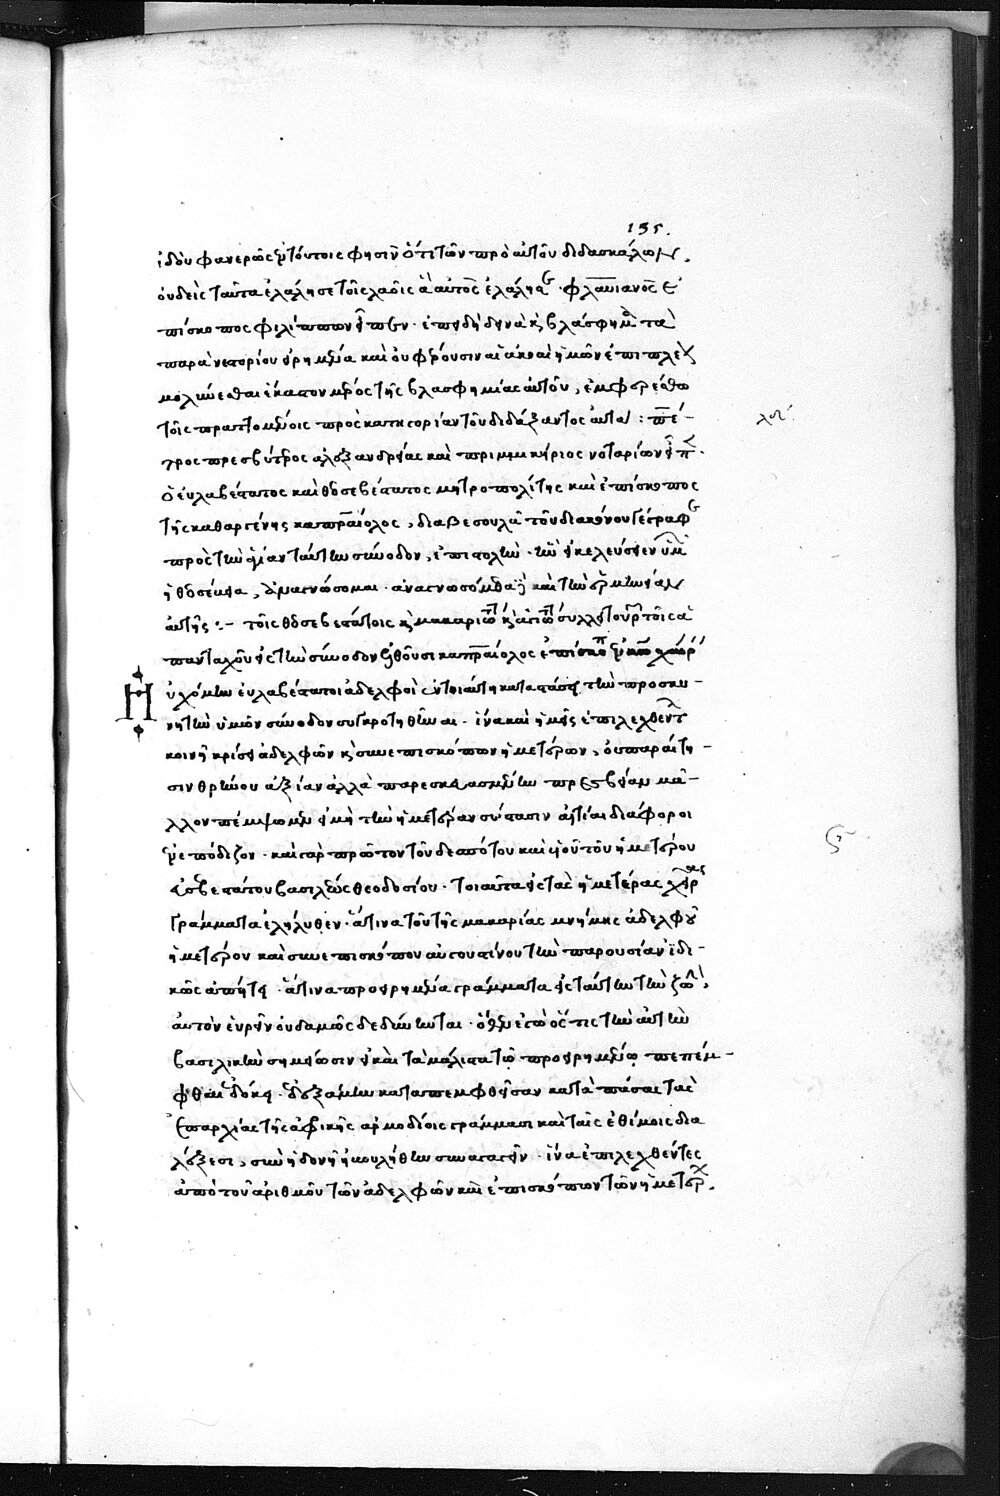 135.
ἰδοὺ φανερῶς ἐν τούτοις φησὶν ὅτι τῶν πρὸ αὐτοῦ διδασκάλων,
οὐδεὶς ταῦτα ἐλάλησε τοῖς λαοῖς ἃ αὐτὸς ἐλάλησε · φλαυιανὸς ἐ
πίσκοπος φιλίππων εἶπεν · ἐπειδὴ δεινὰ καὶ βλάσφημα τὰ
παρὰ νεστορίου εἰρημένα καὶ οὐ φέρουσιν αἱ ἀκοαὶ ἡμῶν ἐπιπλεῖον
μολύνεσθαι ἕκαστον μέρος τῆς βλασφημίας αὐτοῦ, ἐμφερέσθω
τοῖς πραττομένοις πρὸς κατηγορίαν τοῦ διδάξαντος αὐτά : πέ-
τρος πρεσβύτερος ἀλεξανδρείας καὶ πριμμικήριος νοταρίων εἶπεν ·
ὁ εὐλαβέστατος καὶ θεοσεβέστατος μητροπολίτης καὶ ἐπίσκοπος
τῆς καθαργένης καπραίολος, διὰ βεσουλᾶ τοῦ διακόνου γέγραφε
πρὸς τὴν ἁγίαν ταύτην σύνοδον, ἐπιστολὴν · ἣν εἰ κελεύσειεν ὑμῶν
ἡ θεοσέβεια, ἀναγνώσομαι · ἀναγνώσομαι δὲ καὶ τὴν ἑρμηνείαν
αὐτῆς :- τοῖς θεοσεβεστάτοις καὶ μακαριωτ καὶ ἁγιωτ συλλειτουρ τοῖς ἁ
πανταχοῦ εἰς τὴν σύνοδον ἐλθοῦσι καπραίολος ἐπίσκοπος
Ηὐχόμην εὐλαβέστατοι ἀδελφοὶ ἐν τοιαύτῃ καταστάσει τὴν προσκυ-
νητὴν ὑμῶν σύνοδον συγκροτηθῆναι · ἵνα καὶ ἡμεῖς ἐπιλεχθέντων
κοινῇ κρίσει ἀδελφῶν καὶ συνεπισκόπων ἡμετέρων, οὐ παραίτη-
σιν θρήνου ἀξίαν ἀλλὰ παρεσκευασμένην πρεσβείαν μᾶ-
λλον πέμψωμεν εἰ μὴ τὴν ἡμετέραν σύστασιν αἰτίαι διάφοροι
ἐνεπόδιζον · καὶ γὰρ πρῶτον τοῦ δεσπότου καὶ υἱοῦ τοῦ ἡμετέρου
εὐσεβεστάτου βασιλέως θεοδοσίου · τοιαῦτα εἰς τὰς ἡμετέρας χεῖρας
γράμματα ἐλήλυθεν · ἅτινα τοῦ τῆς μακαρίας μνήμης ἀδελφοῦ
ἡμετέρου καὶ συνεπισκόπου αὐγουστίνου τὴν παρουσίαν ἰδι-
κῶς ἀπῄτει · ἅτινα προειρημένα γράμματα εἰς ταύτην τὴν ζωὴν,
αὐτὸν εὑρεῖν οὐδαμῶς δεδύνηνται · ὅθεν ἐγὼ ὅστις τὴν αὐτὴν
βασιλικὴν σημείωσιν εἰ καὶ τὰ μάλιστα τῷ προειρημένῳ πεπέμ-
φθαι ἐδόκει · δεξάμην καταπεμφθεῖσαν κατὰ πάσας τὰς
ἐπαρχίας τῆς ἀφρικῆς ἁρμοδίοις γράμμασι καὶ ταῖς ἐθίμοις δια
λέξεσι, συνηδονῇ ἠβουλήθην συναγαγεῖν · ἵνα ἐπιλεχθέντες
ἀπὸ τοῦ ἀριθμοῦ τῶν ἀδελφῶν καὶ ἐπισκόπων τῶν ἡμετέρων.